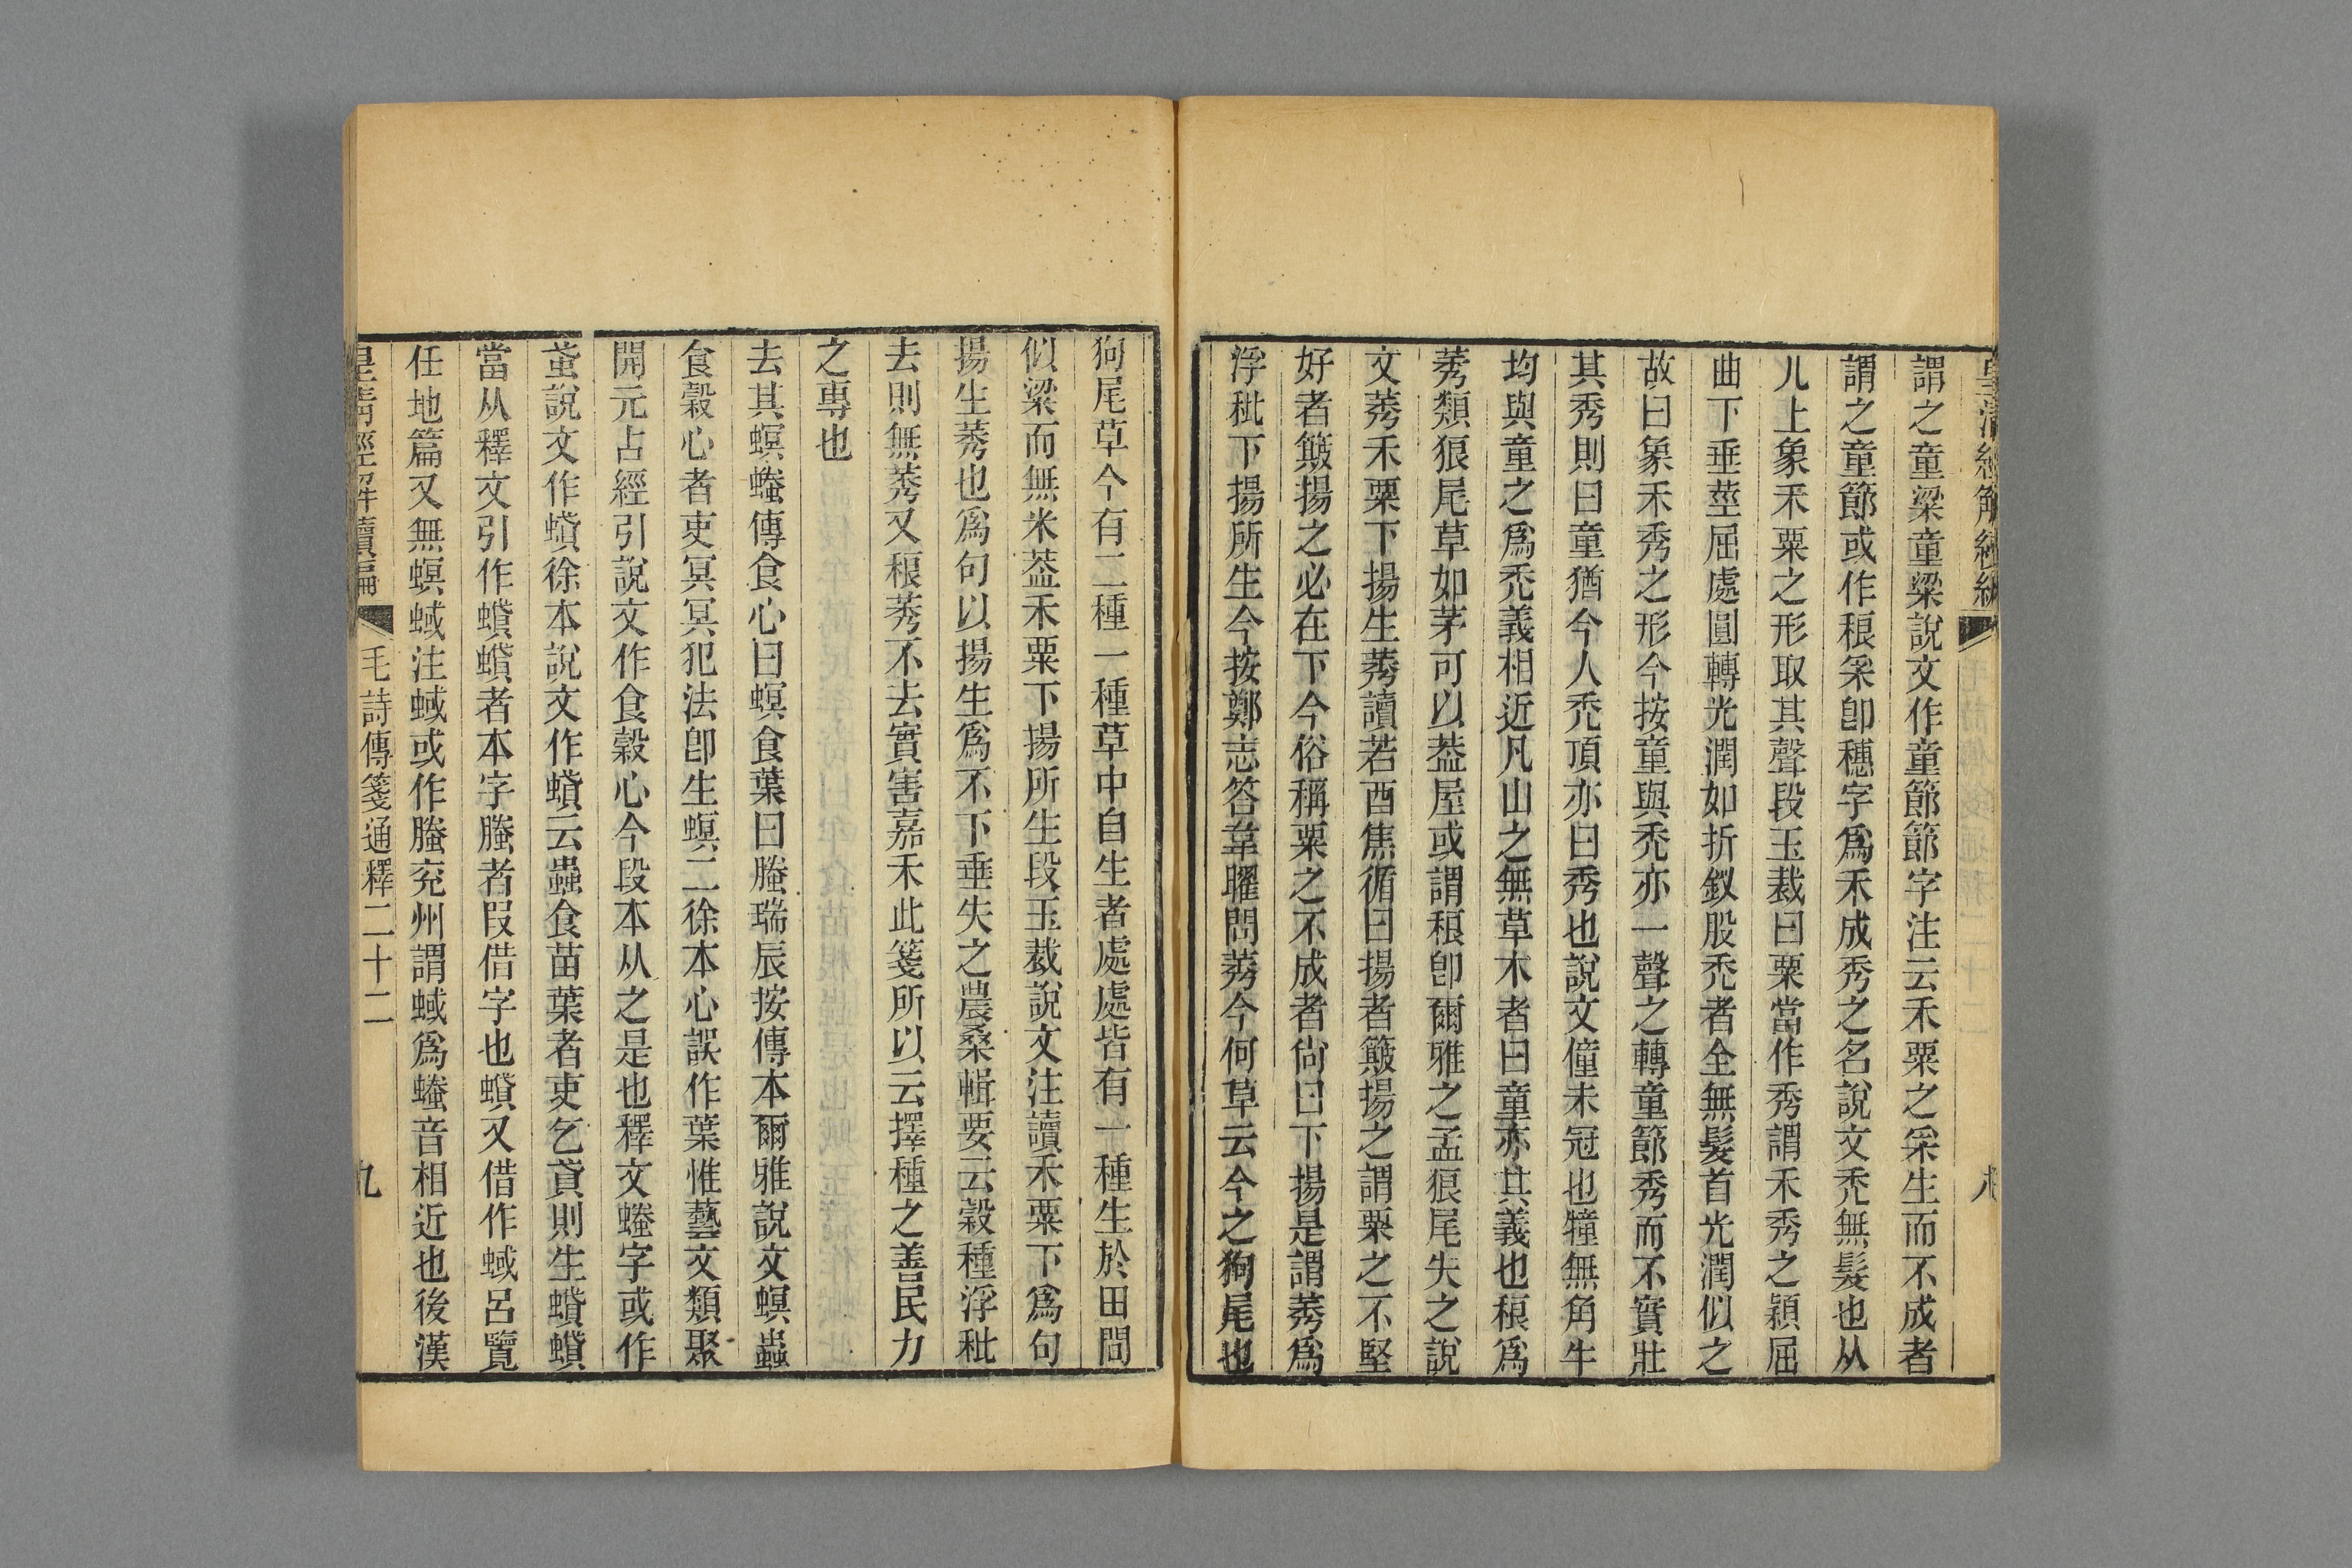 謂之童粱童粱說文作童節節字注云禾粟之采生而不成者
謂之童節或作稂采卽穗字爲禾成秀之名說文禿無髮也从
儿上象禾粟之形取其聲段玉裁曰粟當作秀謂禾秀之穎屈
曲下垂莖屈處圓轉光潤如折釵股禿者全無髮首光潤似之
故曰象禾秀之形今按童與禿亦一聲之轉童節秀而不實壯
其秀則曰童猶今人禿頂亦曰秀也說文僮未冠也犝無角牛
均與童之爲禿義相近凡山之無草木者曰童亦其義也稂爲
莠類狼尾草如茅可以葢屋或謂稂卽爾雅之孟狼尾失之說
文莠禾粟下揚生莠讀若酉焦循曰揚者簸揚之謂粟之不堅
好者簸揚之必在下今俗稱粟之不成者尙曰下揚是謂莠爲
浮秕下揚所生今按鄭志答韋曜問莠今何草云今之狗尾也
狗尾草今有二種一種草中自生者處處皆有一種生於田間
似粱而無米葢禾粟下揚所生段玉裁說文注讀禾粟下爲句
揚生莠也爲句以揚生爲不下垂失之農桑輯要云穀種浮秕
去則無莠又稂莠不去實害嘉禾此箋所以云擇種之善民力
之專也
去其螟螣傳食心曰螟食葉曰螣瑞辰按傳本爾雅說文螟蟲
食穀心者吏冥冥犯法卽生螟二徐本心誤作葉惟藝文類聚
開元占經引說文作食穀心今段本从之是也釋文螣字或作
䖝說文作蟘徐本說文作蟘云蟲食苗葉者吏乞貣則生蟘蟘
當从釋文引作蟘蟘者本字螣者叚借字也蟘又借作蜮呂覽
任地篇又無螟蜮注蜮或作螣兖州謂蜮爲螣音相近也後漢
皇淸經解續編 毛詩傳箋通釋二十二 九